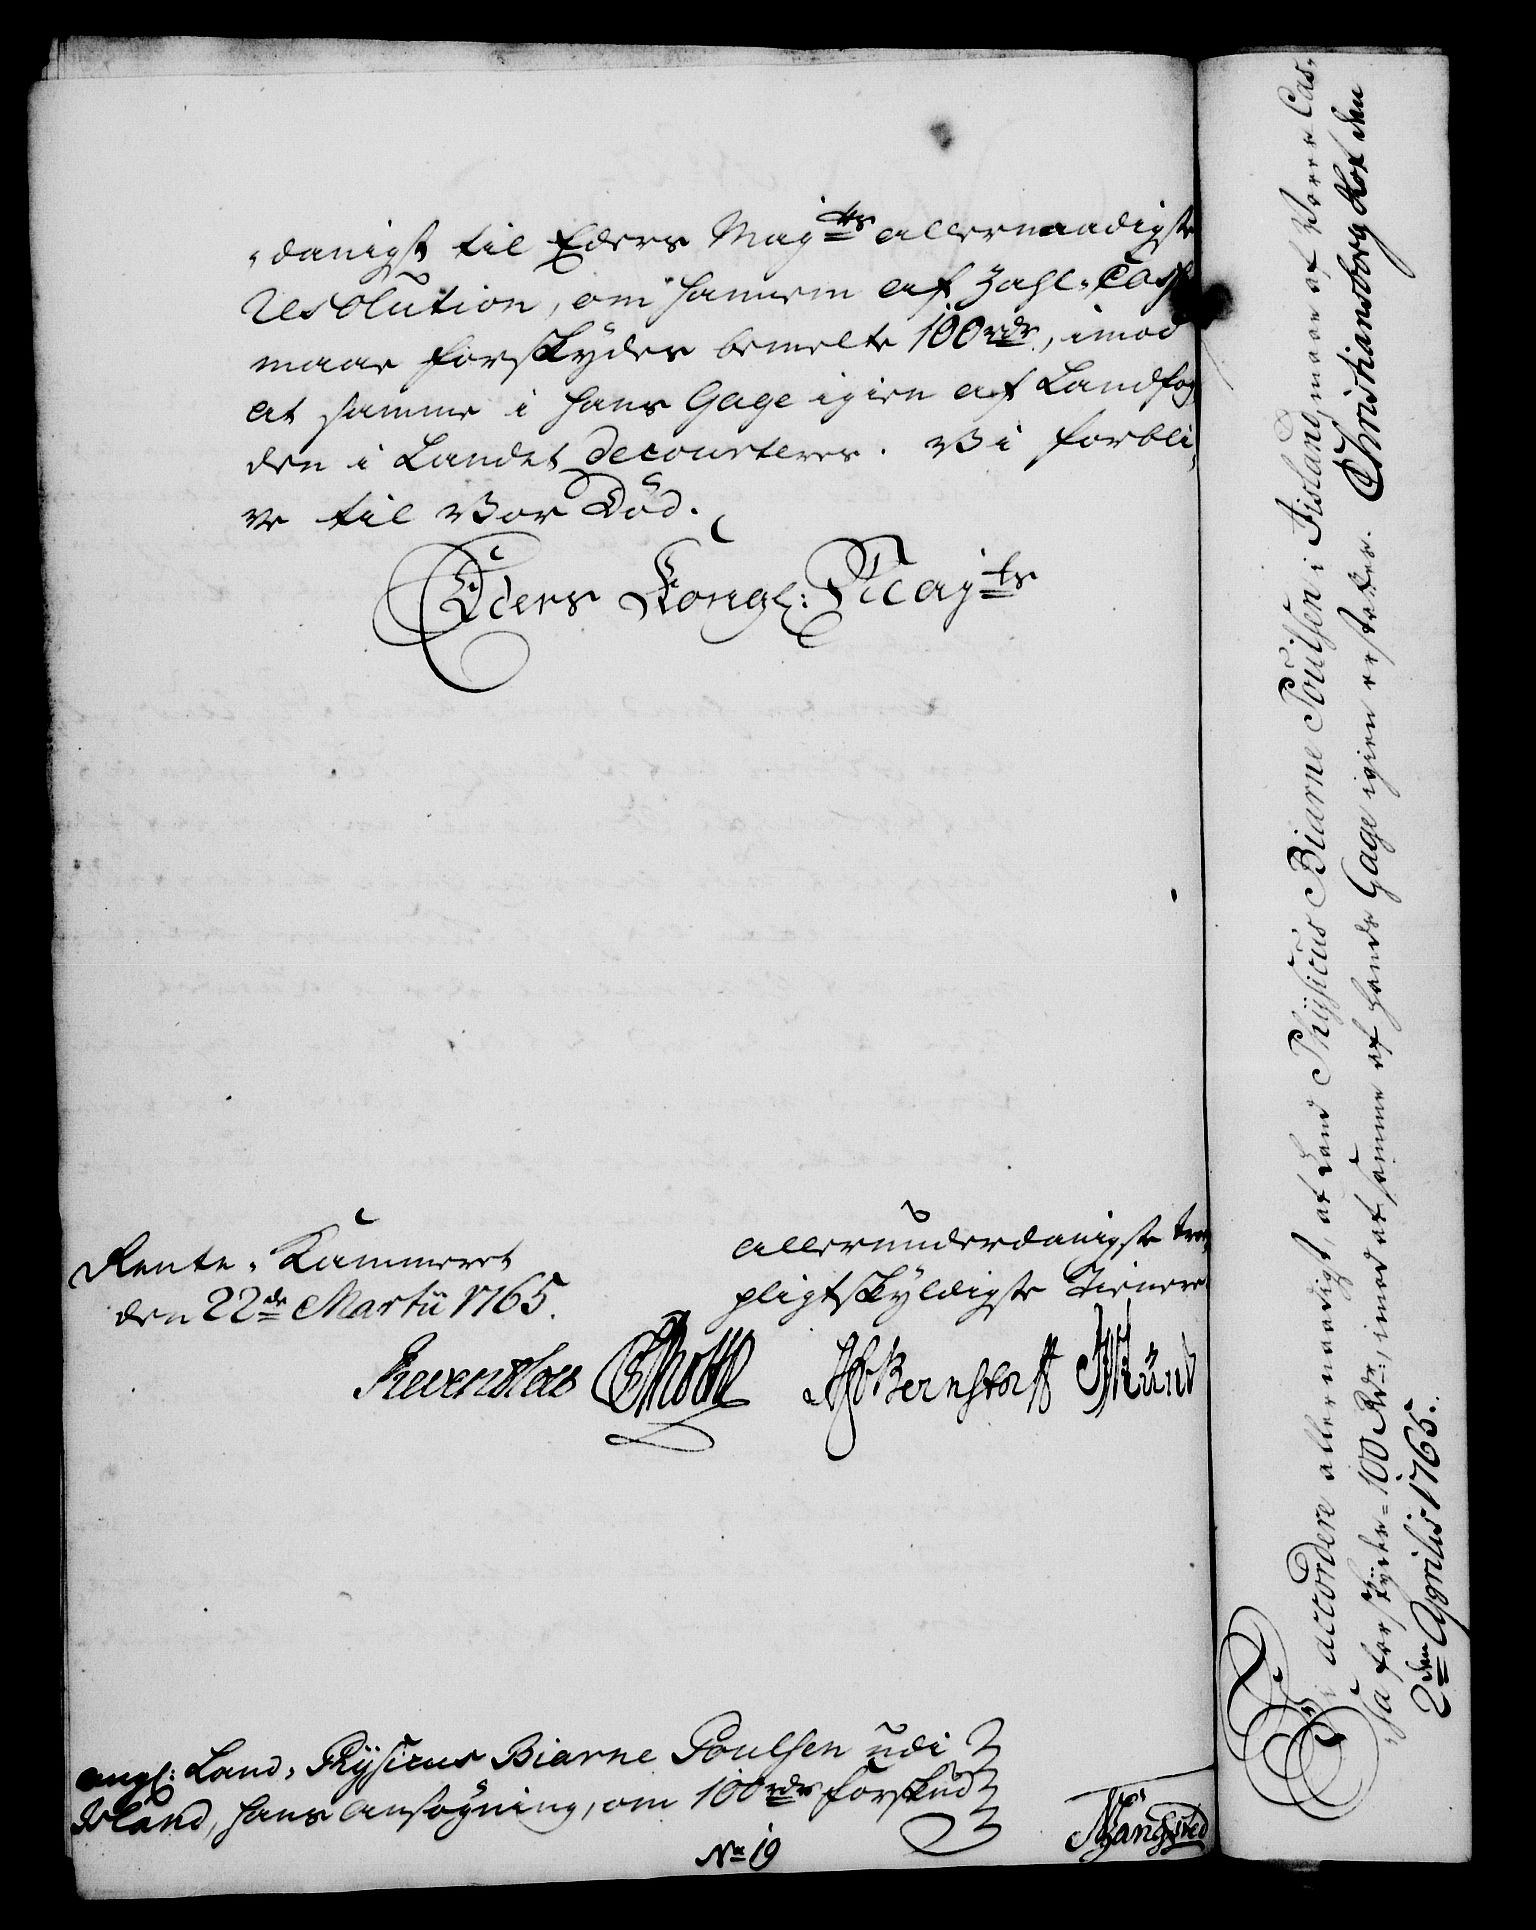 danigst til Eders Maj<sup>ts</sup> allernaadigste
resolution, om hannem af Zahl-Cass
maae forskydes bemelte 100 rdr., imod
at samme i hans Gage igien af Landfog
den i Landet decourteres. Vi forbli
ve til Vor Död.
Eders Kongl: Maj<sup>ts</sup>
Rente-Kammeret
den 22<sup>de</sup> Martii 1765.
allerunderdanigste
pligtskyldigste Tienere
Reventlow CAvPlessen JHEBernstorff
angl: Land-Physicus Biarne Poulsen udi
Island, hans Ansögning, om 100 rdr Forskud
N<sup>o</sup> 19
Vi accordere allernaadigst, at Land Physicus Biarne Poulsen i Iisland, maae af Vores Cas-
sa forskydes 100 Rdr, imod at samme af hands Gage igien erstattes. Christiansborg Slot den
2<sup>den</sup> Aprilis 1765.